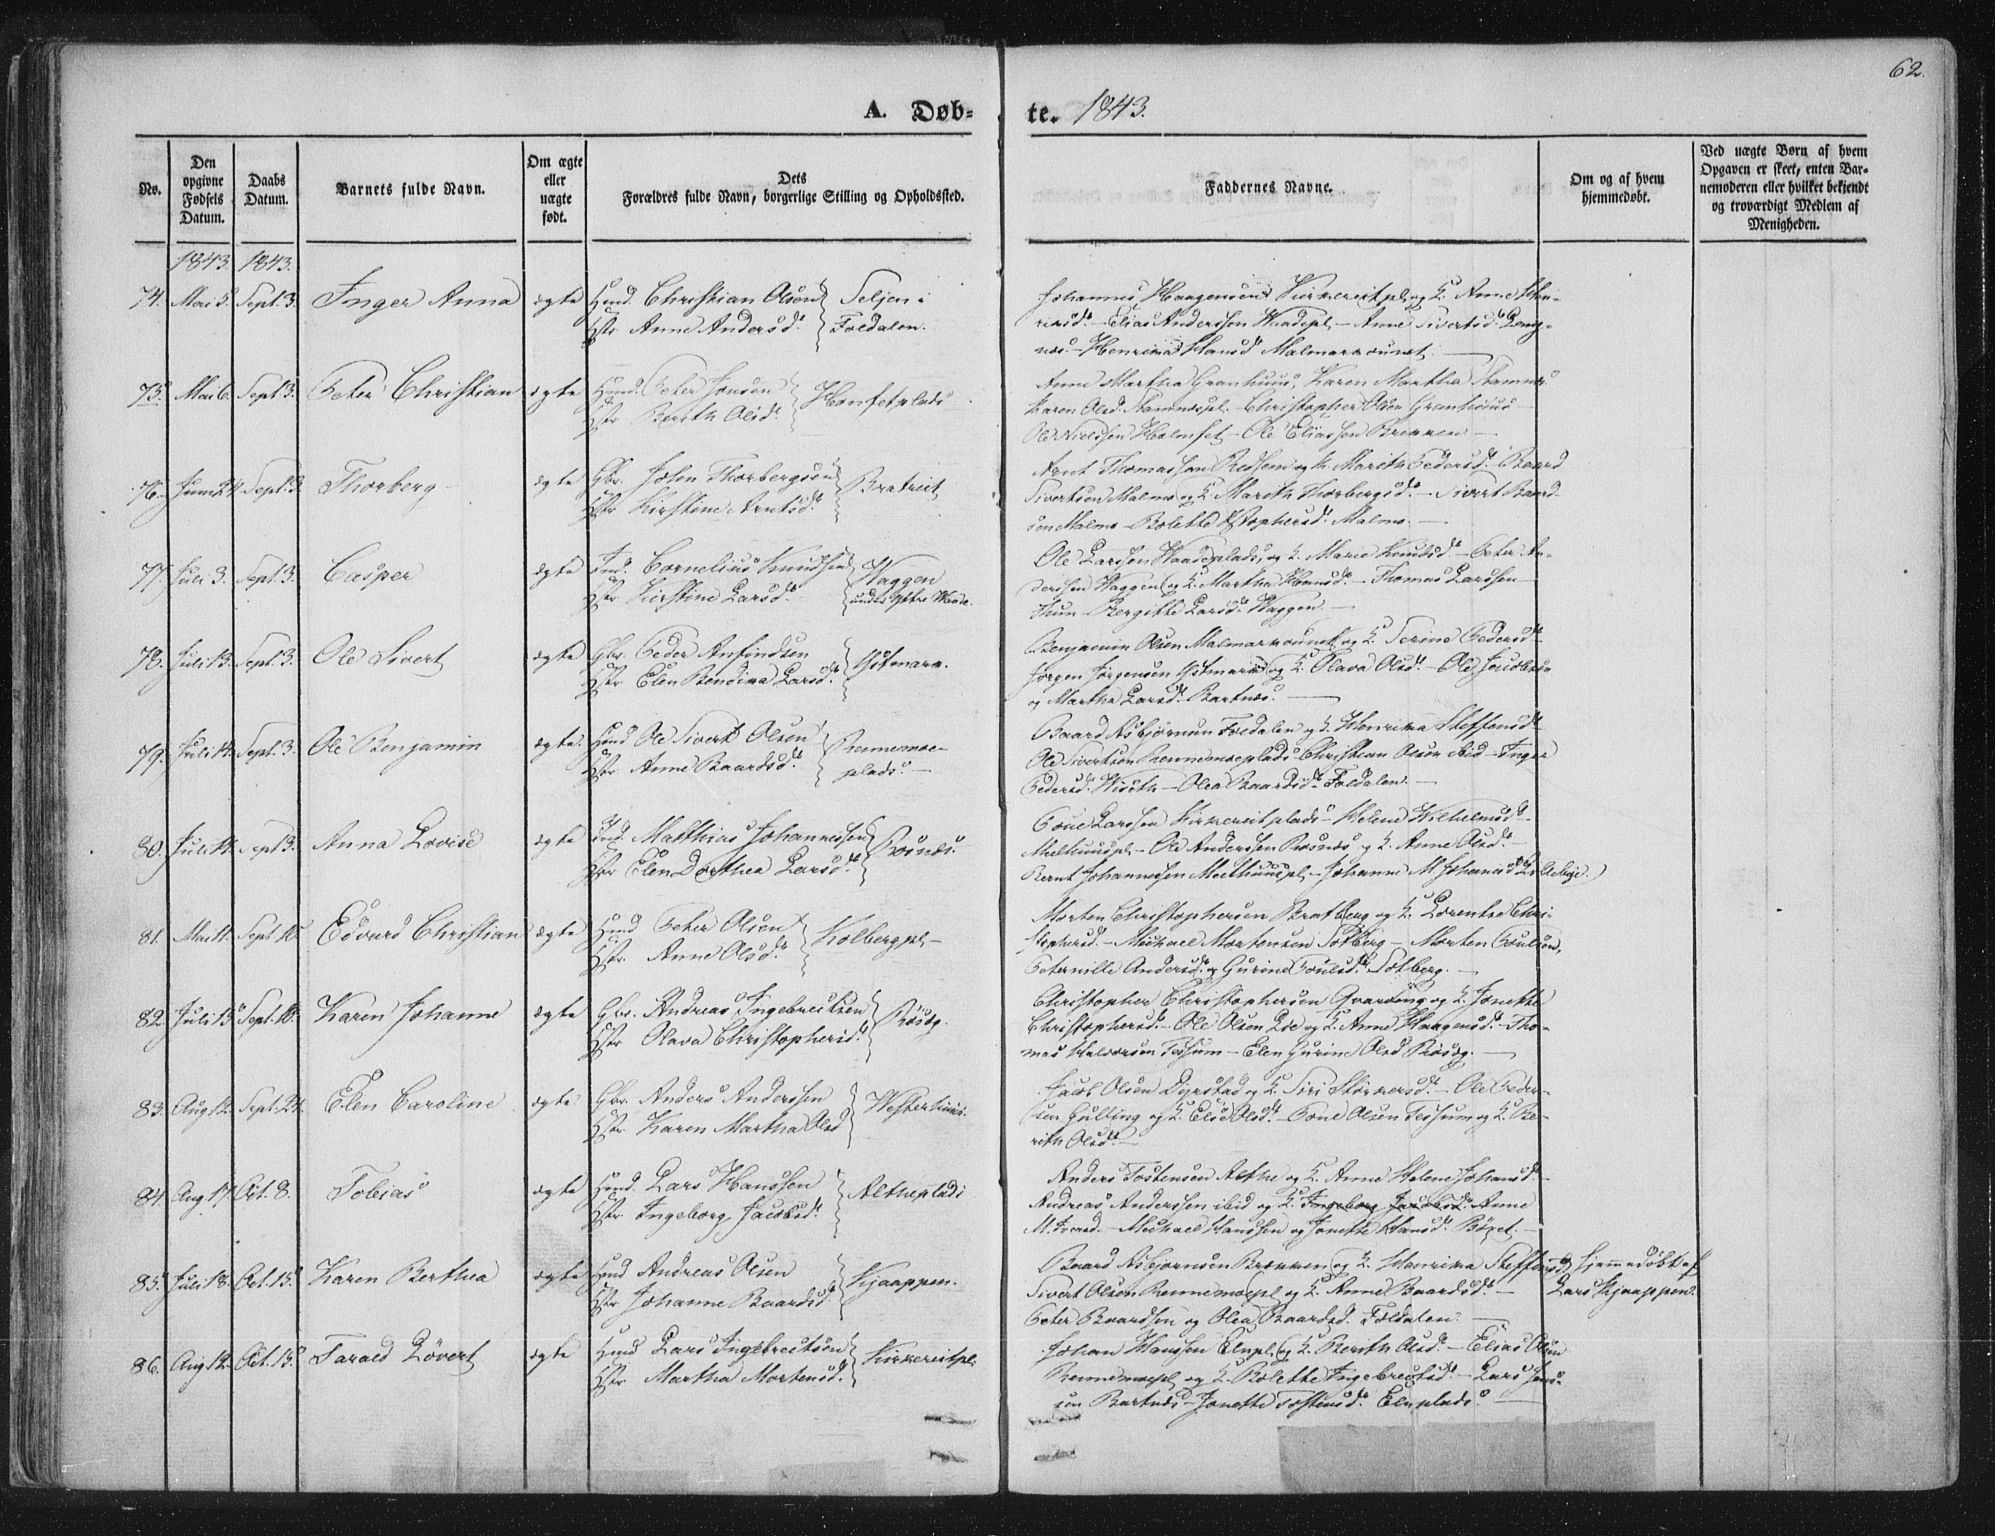 62.
A. Døb-
te. 1843.
No.
Den opgivne Fødsels Datum.
Daabs Datum.
Barnets fulde Navn.
Om ægte eller uægte født.
Dets
Forældres fulde Navn, borgerlige Stilling og Opholdssted.
Faddernes Navne.
Om og af hvem hjemmedøbt.
Ved uægte Børn af hvem
Opgaven er skeet, enten Bar-
nemoderen eller hvilket bekjendt
og troværdigt Medlem af
Menigheden.
1843. 1843.
74. Mai 5. Sept. 3. Inger Anna ægte Huusm. Christian Olsen Seljen i
Hstr. Anne Andersd. Foldalen.
Johannes Haagensen Kirkereitpl. og K. Anne Hen-
riksd. - Elias Anderssen Waadepl - Anne Sivertsd.
Henrika Hansd. Malmarkaunet.
75. Mai 6. Sept. 3. Peter Christian ægte Huusm. Peter Jonsen Honsetplads
Hstr. Berith Olsd.
Anne Martha Granhuus, Karen Martha Stamnæs
Karen Olsd. Stamnæspl. - Christopher Olsen Granhuus
Ole Nielssen Holmset - Ole Eliassen Brekken
76. Juni 24. Sept. 3. Thorberg ægte Gbr. John Thorbergsen Bratreit
Hstr. Kirstine Arntsd.
Arnt Thomassen og K. Marith Pedersd. Baard
Sivertsen Malmo og K. Marith Thorbergsd. - Sivert Baard-
sen Malmo - Bolette Malmo.
77. Juli 3. Sept. 3. Casper ægte Ind. Cornelius Knudsen Waggen
Hstr. Kirstine Larsd. under ydtre Waade.
Ole Larssen Waadeplads, og K. Marie Knudsd. - Peter An-
derssen Waggen og K. Martha Hansd. - Thomas Larssen
Bergitte Larsd. Waggen.
78. Juli 13. Sept. 3. Ole Sivert ægte Gbr. Peder Anfindsen Ystmark.
Hstr. Elen Bendika Larsd.
Benjamin Olsen Malmarkaunet og K. Serine Pedersd.
Jørgen Jørgensen Ystmark og K. Olava Olsd. - Ole Jacobsen
og Martha Larsd. Bartnæs.
79. Juli 14. Sept. 3. Ole Benjamin ægte Huusm. Ole Sivert Olsen Rennemoe-
Hstr. Anne Baardsd. plads.
Baard Asbjørnsen Foldalen og K. Henrika Steffensd.
Ole Sivertsen Rennemoeplads - Christian Olsen ibid - Inger
Pedersd. Wiseth - Olea Baardsd. Foldalen.
80. Juli 14. Sept. 3. Anna Lovise ægte Ind. Matthias Johannessen Bosnæs.
Hstr. Elen Dorthea Larsd.
Poul Larssen Kirkereitplads - Helene Wilhelmsd.
Melhuuspl. - Ole Anderssen Bosnæs og K. Anne Olsd.
Bernt Johannessen Melhuuspl. - Johanne M. Johansd.
81. Mai 11. Sept. 10. Edvard Christian ægte Huusm. Peter Olsen Holbergpl.
Hstr. Anne Olsd.
Morten Christophersen Bratberg og K. Lorentze Chri-
stophersd. - Michael Mortensen Solberg - Morten Poulsen,
Peternille Andersd. og Gurine Poulsd. Solberg.
82. Juli 15. Sept. 10. Karen Johanne ægte Gbr. Andreas Ingebrectsen Bøsøg.
Hstr. Olava Christophersd.
Christopher Christophersen Qvarving og K. Jonette
Christophersd. - Ole Olsen Loe og K. Anne Haagensd. - Tho-
mas Halvorsen Tessum - Elen Gurine Olsd. Bøsøg.
83. Aug. 12. Sept. 24. Elen Caroline ægte Gbr. Anders Anderssen Westerhuus.
Hstr. Karen Martha Olsd.
Jacob Olsen Dyrstad og K. Siri Størkersd. - Ole Peder-
sen Gulling og K. Else Olsd. - Poul Olsen Tessum og K. Be-
rith Olsd.
84. Aug. 17. Oct. 8. Tobias ægte Huusm. Lars Hanssen Altheplads
Hstr. Ingeborg Jacobsd.
Anders Tostensen Althe og K. Anne Helene Johansd.
Andreas Anderssen ibid og K. Ingeborg Jacobsd. Anne
M. Iversd. - Michael Hanssen og Jonette Hansd. Bøset.
85. Juli 18. Oct. 15. Karen Berthea ægte Huusm. Andreas Olsen Kjaappen.
Hstr. Johanne Baardsd.
Baard Asbjørnsen Brækken og K. Henrika Steffensd.
Sivert Olsen Rennemoepl. og K. Anne Baardsd.
Peter Baardsen og Olea Baardsd. Foldalen.
hjemmedøbt af
Lars Kjaappen.
86. Aug. 12. Oct. 15. Tarald Løvert ægte Huusm. Lars Ingebrectsen Kirkereitpl.
Hstr. Martha Mortensd.
Johan Hanssen Elnpl. og K. Berith Olsd. - Elias Olsen
Rennemoepl. og K. Bolette Ingebrectsd. - Lars Jens-
sen Bartnæs - Jonette Tostensd. Elnplads.